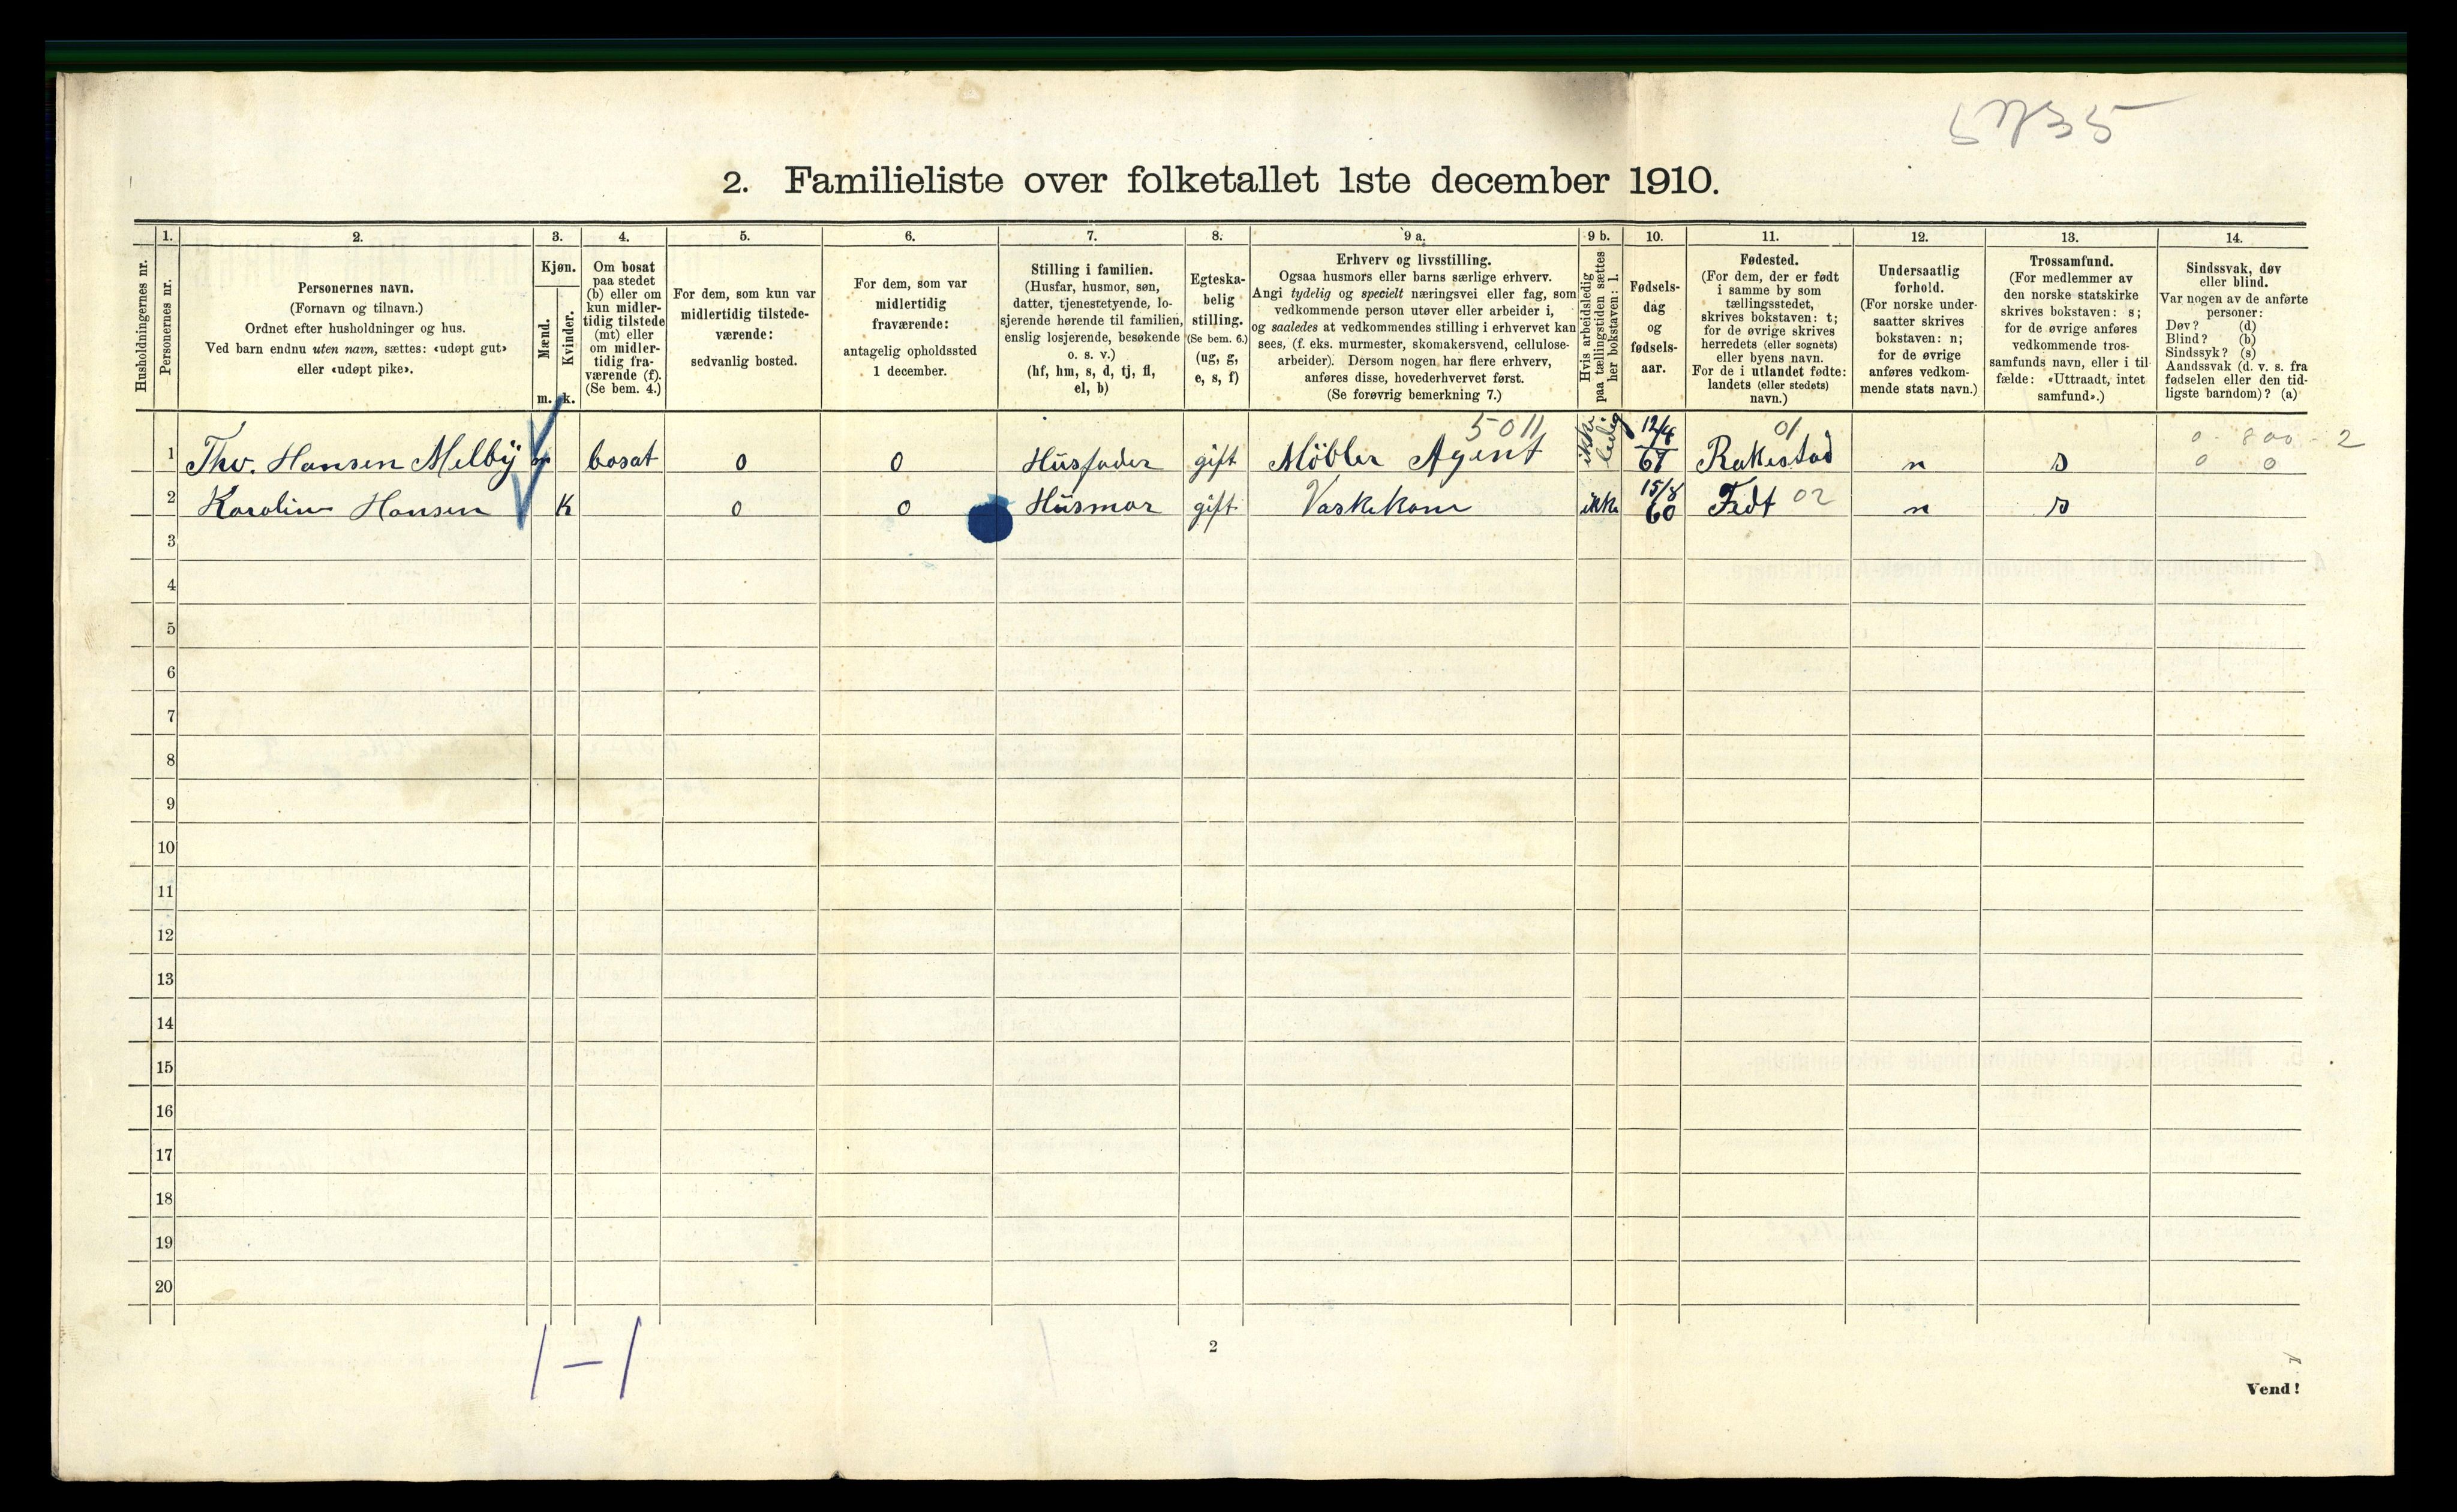 5735
2. Familieliste over folketallet 1ste december 1910.
Husholdningernes nr.
1.
Personernes nr.
2.
Personernes navn.
(Fornavn og tilnavn.)
Ordnet efter husholdninger og hus.
Ved barn endnu uten navn, sættes: «udøpt gut»
eller «udøpt pike».
3.
Kjøn.
Mænd.
Kvinder.
m. k.
4.
Om bosat
paa stedet
(b) eller om
kun midler-
tidig tilstede
(mt) eller
om midler-
tidig fra-
værende (f).
(Se bem. 4.)
5.
For dem, som kun var
midlertidig tilstede-
værende:
sedvanlig bosted.
6.
For dem, som var
midlertidig
fraværende:
antagelig opholdssted
1 december.
7.
Stilling i familien.
(Husfar, husmor, søn,
datter, tjenestetyende, lo-
sjerende hørende til familien,
enslig losjerende, besøkende
o. s. v.)
(hf, hm, s, d, tj, fl,
el, b)
8.
Egteska-
belig
stilling.
(Se bem. 6.)
(ug, g,
e, s, f)
9 a.
Erhverv og livsstilling.
Ogsaa husmors eller barns særlige erhverv.
Angi tydelig og specielt næringsvei eller fag, som
vedkommende person utøver eller arbeider i,
og saaledes at vedkommendes stilling i erhvervet kan
sees, (f. eks. murmester, skomakersvend, cellulose-
arbeider). Dersom nogen har flere erhverv,
anføres disse, hovederhvervet først.
(Se forøvrig bemerkning 7.)
9 b.
Hvis arbeidsledig
paa tællingstiden sættes
her bokstaven: l.
10.
Fødsels-
dag
og
fødsels-
aar.
11.
Fødested.
(For dem, der er født
i samme by som
tællingsstedet,
skrives bokstaven: t;
for de øvrige skrives
herredets (eller sognets)
eller byens navn.
For de i utlandet fødte:
landets (eller stedets)
navn.)
12.
Undersaatlig
forhold.
(For norske under-
saatter skrives
bokstaven: n;
for de øvrige
anføres vedkom-
mende stats navn.)
13.
Trossamfund.
(For medlemmer av
den norske statskirke
skrives bokstaven: s;
for de øvrige anføres
vedkommende tros-
samfunds navn, eller i til-
fælde: «Uttraadt, intet
samfund».)
14.
Sindssvak, døv
eller blind.
Var nogen av de anførte
personer:
Døv? (d)
Blind? (b)
Sindssyk? (s)
Aandssvak (d. v. s. fra
fødselen eller den tid-
ligste barndom)? (a)
5011 01 0 - 800 - 2
1 Thv. Hansen Melby m bosat 0 0 Husfader gift Möbler Agent ikke ledig 12/4 67 Rakestad n s 0 0
2 Karoline Hansen K 0 0 Husmor gift Vaskekone ikke 15/8 60 Fedt 02 n s
3
4
5
6
7
8
9
10
11
12
13
14
15
16
17
18
19
20
1 - 1
2
Vend!